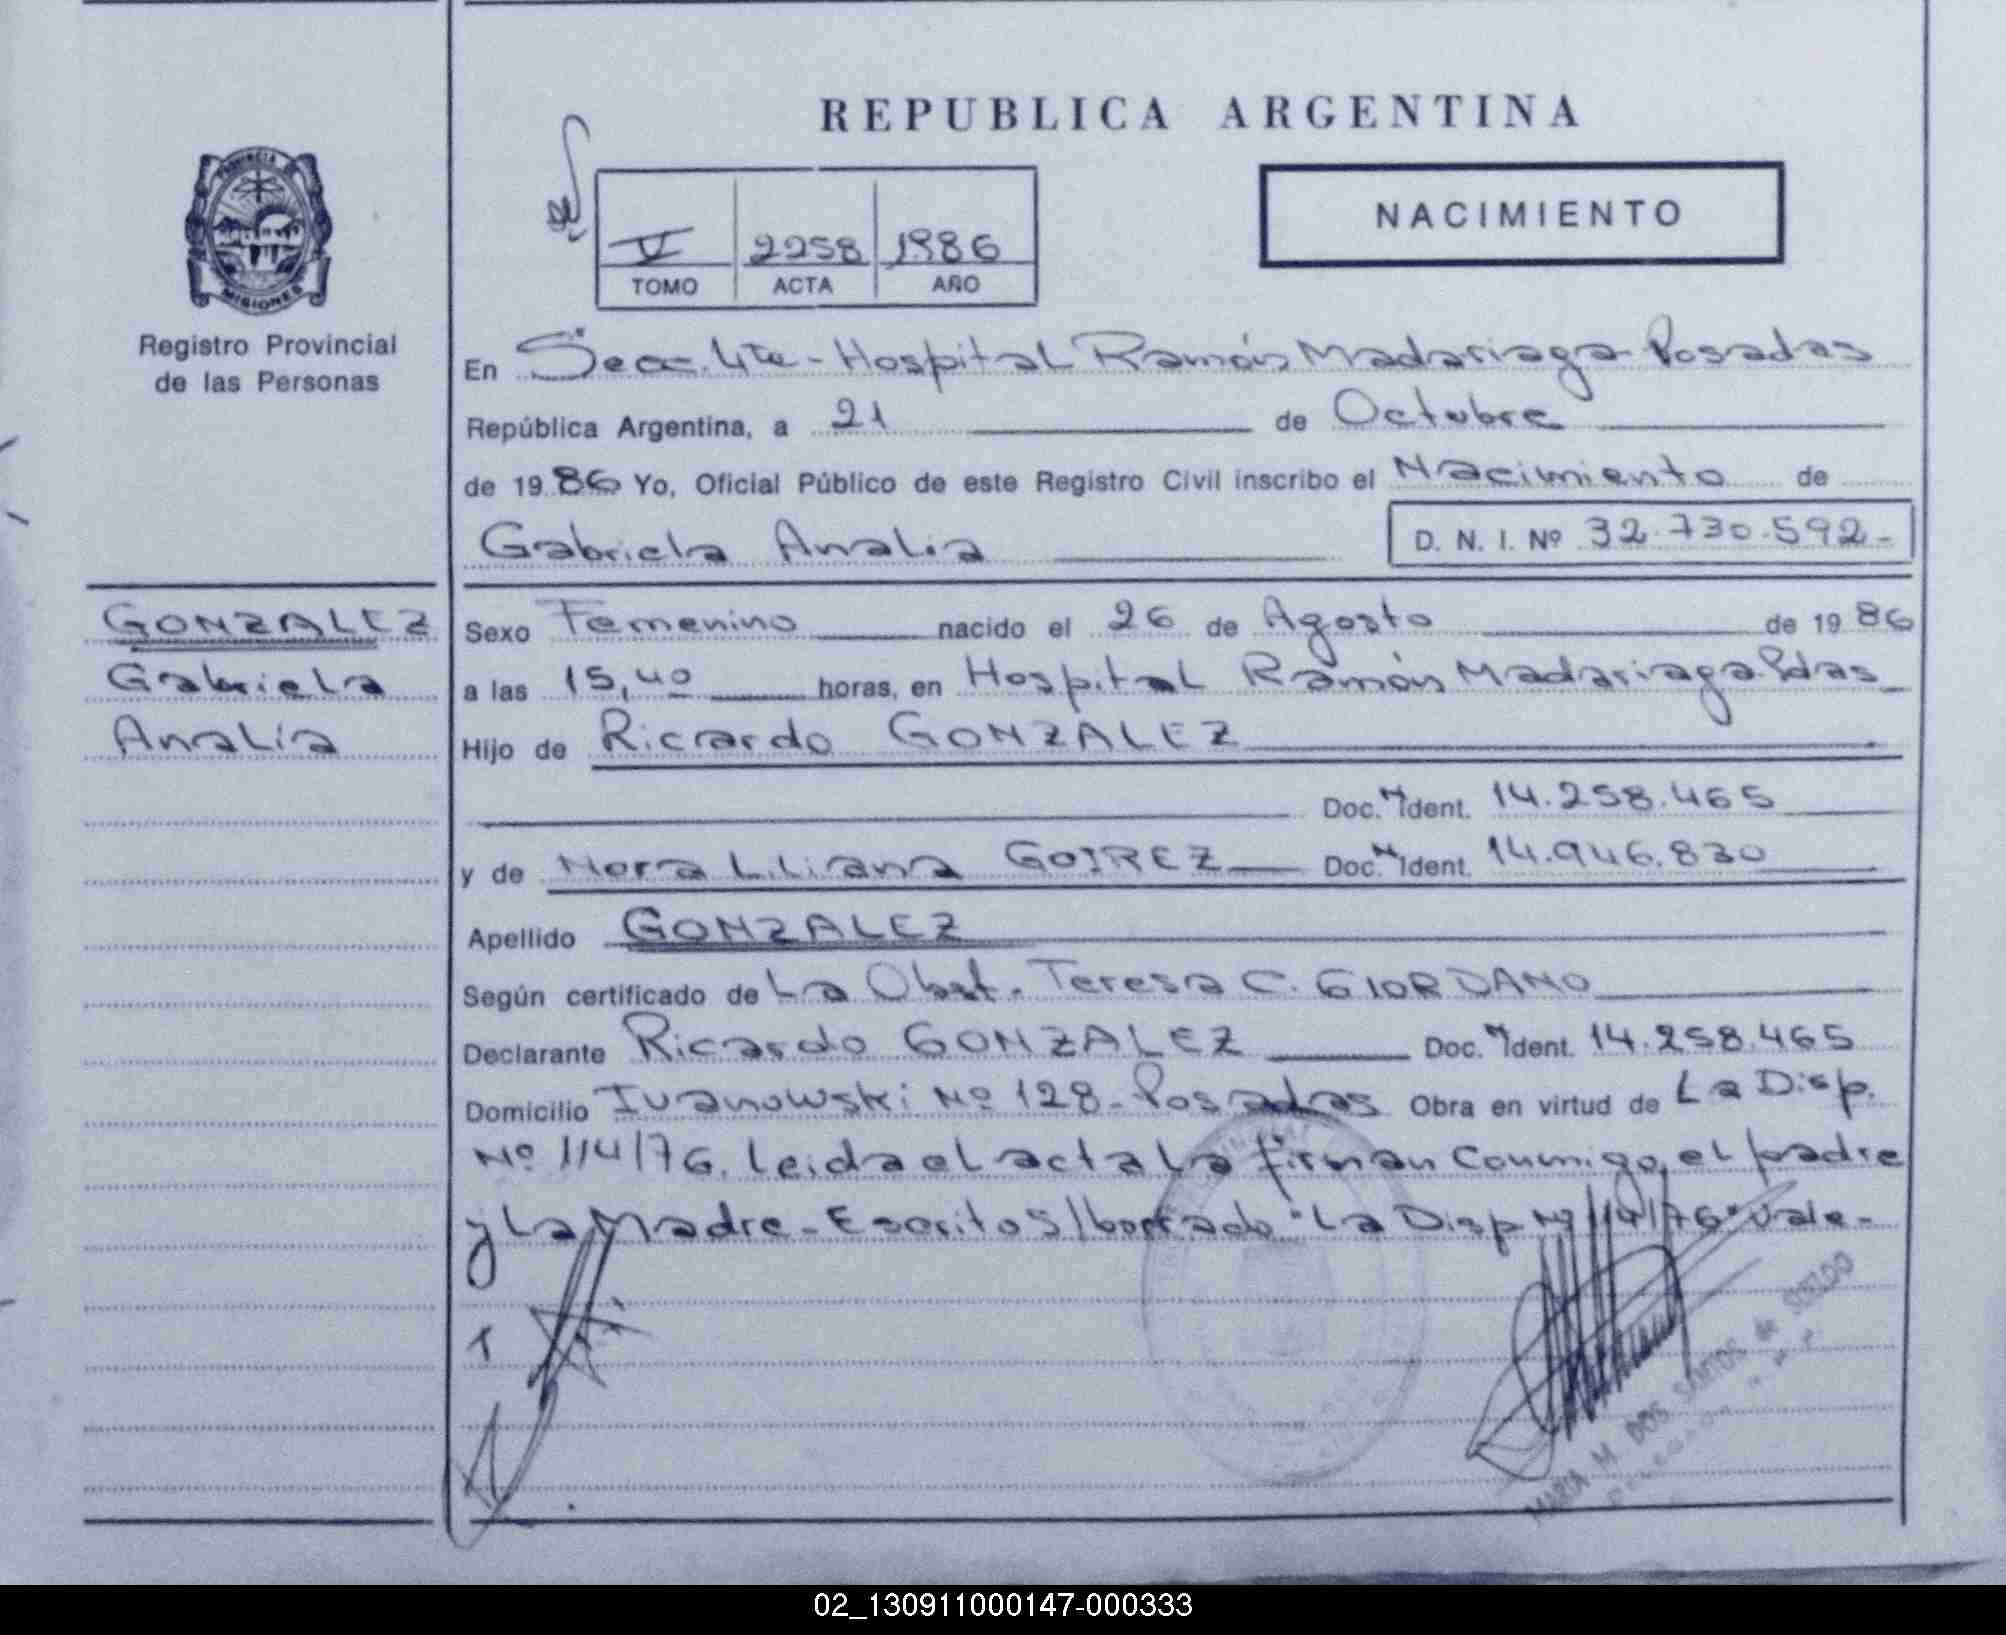 REPUBLICA ARGENTINA
NACIMIENTO
V 2258 1986
TOMO ACTA AÑO
PROVINCIA
MISIONES
Registro Provincial
de las Personas
En Secc. 4ta - Hospital Ramón Madariaga - Posadas
República Argentina, a 21 de Octubre
de 19 86 Yo, Oficial Público de este Registro Civil inscribo el Nacimiento de
Gabriela Analia D. N. I. Nº 32.730.592-
GONZALEZ
Gabriela
Analía
Sexo Femenino nacido el 26 de Agosto de 19 86
a las 15,40 horas, en Hospital Ramón Madariaga. Pdas
Hijo de Ricardo GONZALEZ
Doc. N Ident. 14.258.465
y de Nora Liliana GOIREZ Doc. N Ident. 14.946.830
Apellido GONZALEZ
Según certificado de La Obst. Teresa C. GIORDANO
Declarante Ricardo GONZALEZ Doc. N Ident. 14.258.465
Domicilio Ivanowski Nº 128 - Posadas Obra en virtud de La Disp.
Nº 114/76. Leida el acta la firman conmigo, el padre
y La Madre - Escrito S/borrado "La Disp Nº 114/76" Vale -
MARIA M. DOS SANTOS de SCELDO
02_130911000147-000333